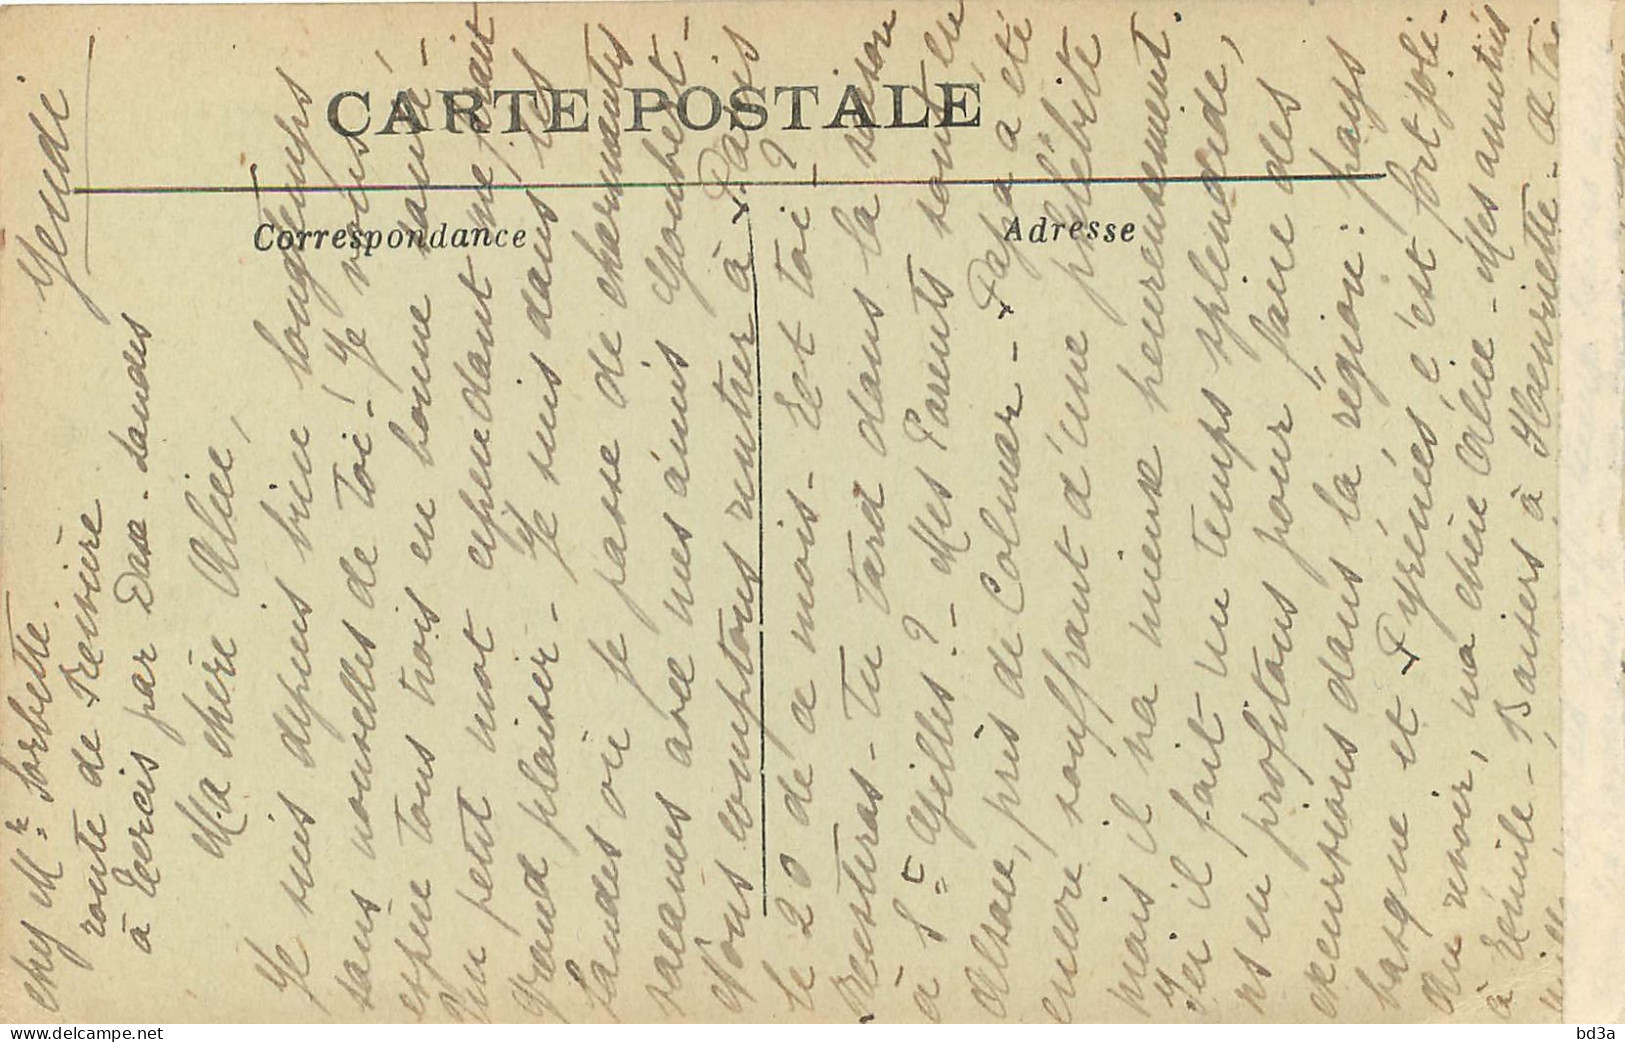 CARTE POSTALE
Correspondance
Adresse
Jeudi
chez Mr Sorbette
route de
à Tercis par Dax. Landes
Ma chère Alice,
Je suis depuis bien longtemps
sans nouvelles de toi! Je vous
espère tous trois en bonne santé -
Un petit mot cependant me ferait
grand plaisir - Je suis dans les
Landes où je passe de charmantes
vacances avec mes amis
Nous comptons rentrer à Paris
le 20 de ce mois - Et toi?
Resteras - tu tard dans la saison
à St Gilles? - Mes Parents sont en
Alsace, près de Colmar - Papa a été
encore souffrant d'une phlébite
mais il va mieux heureusement.
Ici il fait un temps splendide,
ns en profitons pour faire des
excursions dans la région: pays
basque et Pyrénées c'est fort joli -
Au revoir, ma chère Alice - Mes amitiés
à Emile - Baisers à Henriette - A toi
bd3a